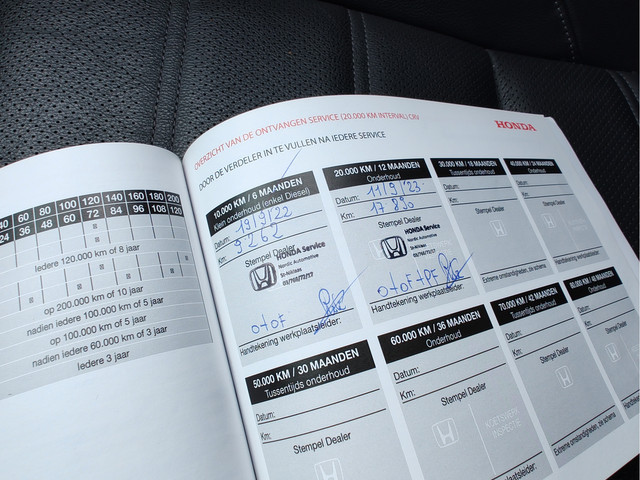 40 60 80 100 120 140 160 180 200
24 36 48 60 72 84 96 108 120
Iedere 120.000 km of 8 jaar
op 200.000 km of 10 jaar
nadien iedere 100.000 km of 5 jaar
op 100.000 km of 5 jaar
nadien iedere 60.000 km of 3 jaar
Iedere 3 jaar
OVERZICHT VAN DE ONTVANGEN SERVICE (20.000 KM INTERVAL) CRV
HONDA
DOOR DE VERDELER IN TE VULLEN NA IEDERE SERVICE
10.000 KM / 6 MAANDEN
Klein onderhoud (enkel Diesel)
Datum: 19/9/22
Km: 9262
Stempel Dealer
HONDA Service
Nordic Automotive
St-Niklaas
O+OF
Handtekening werkplaatsleider:
20.000 KM / 12 MAANDEN
Onderhoud
Datum: 11/9/23
Km:
Stempel Dealer
HONDA Service
Nordic Automotive
St-Niklaas
O+OF+PF
Handtekening werkplaatsleider:
30.000 KM / 18 MAANDEN
Tussentijds onderhoud
Datum:
Km:
Stempel Dealer
Extreme omstandigheden, zie schema
40.000 KM / 24 MAANDEN
Onderhoud
Datum:
Km:
Stempel Dealer
Handtekening werkplaatsleider:
50.000 KM / 30 MAANDEN
Tussentijds onderhoud
Datum:
Km:
Stempel Dealer
60.000 KM / 36 MAANDEN
Onderhoud
Datum:
Km:
Stempel Dealer
KOETSWERK
INSPECTIE
70.000 KM / 42 MAANDEN
Tussentijds onderhoud
Datum:
Km:
Stempel Dealer
Extreme omstandigheden, zie schema
80.000 KM / 48 MAANDEN
Onderhoud
Datum:
Km:
Stempel Dealer